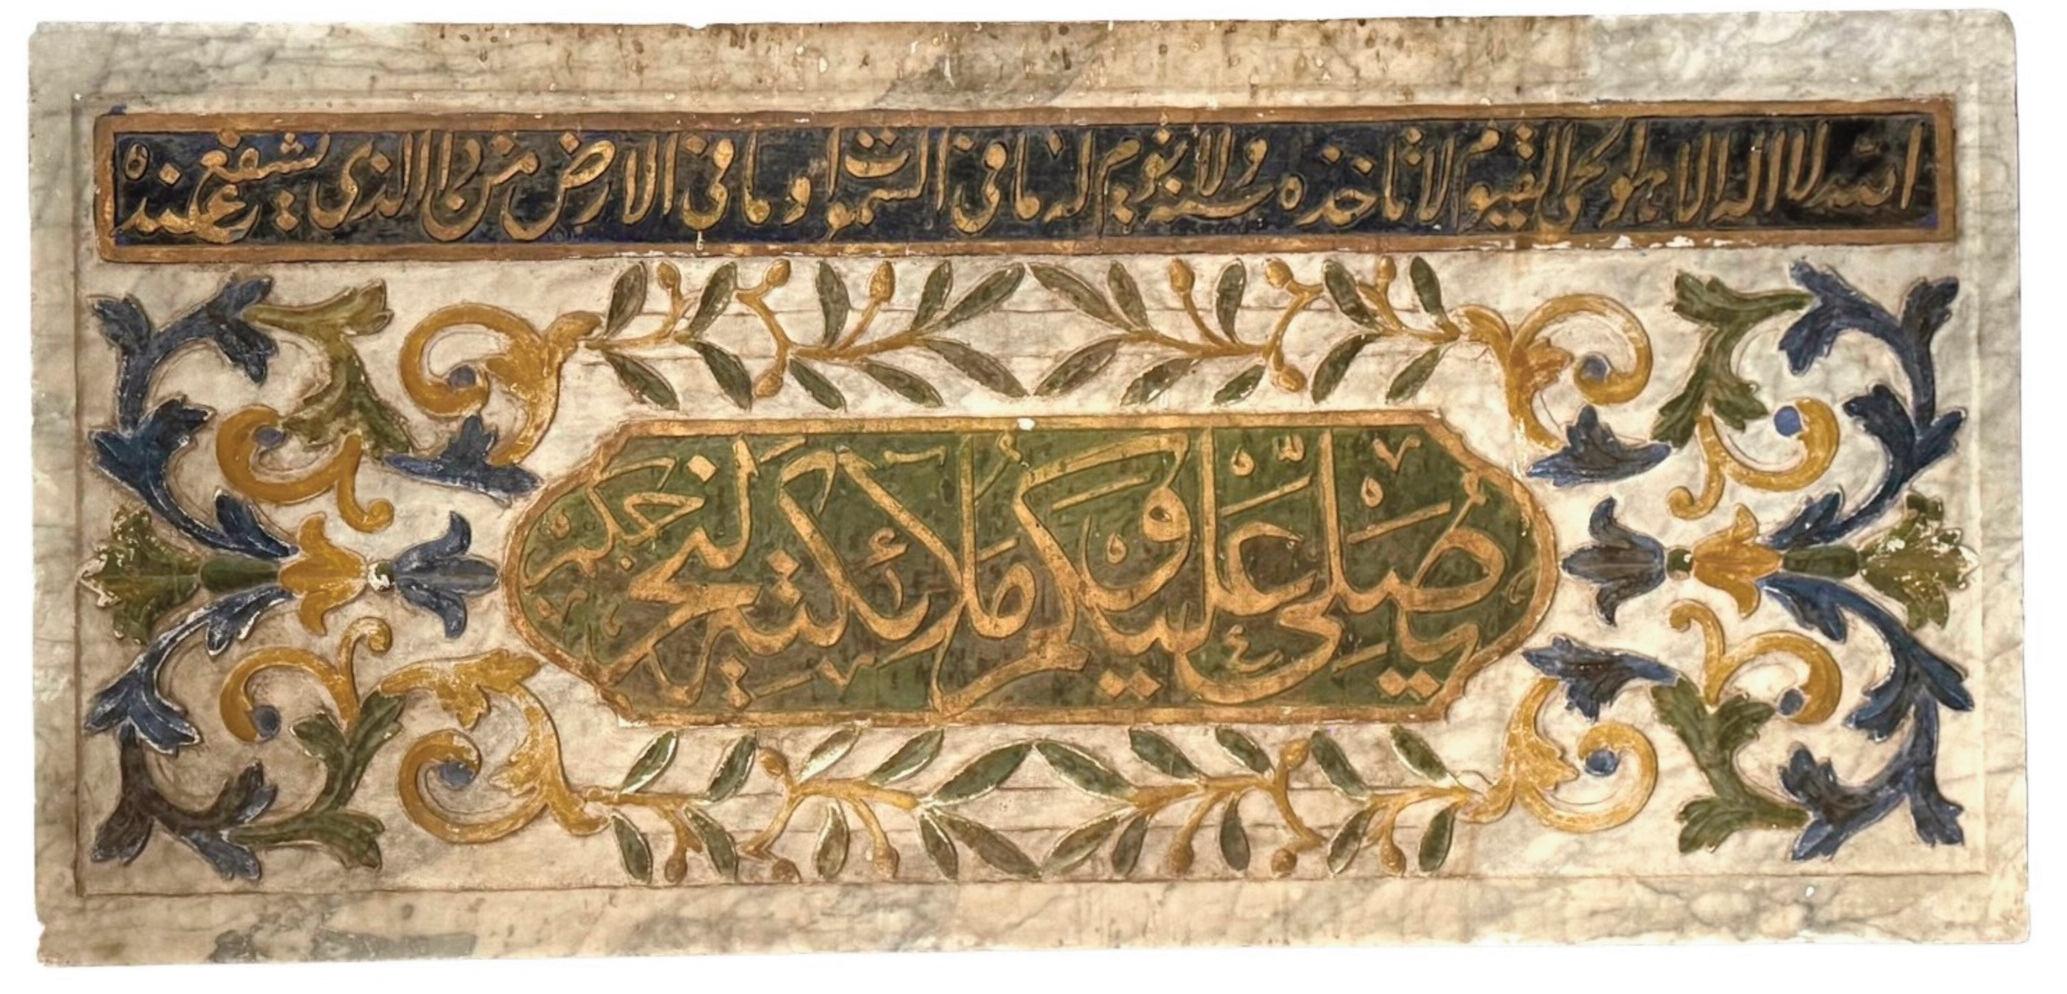 الله لا اله الا هو الحي القيوم لا تاخذه سنة ولا نوم له ما في السموات وما في الارض من ذا الذي يشفع عنده
يصلي عليكم وملائكته ليخرجكم